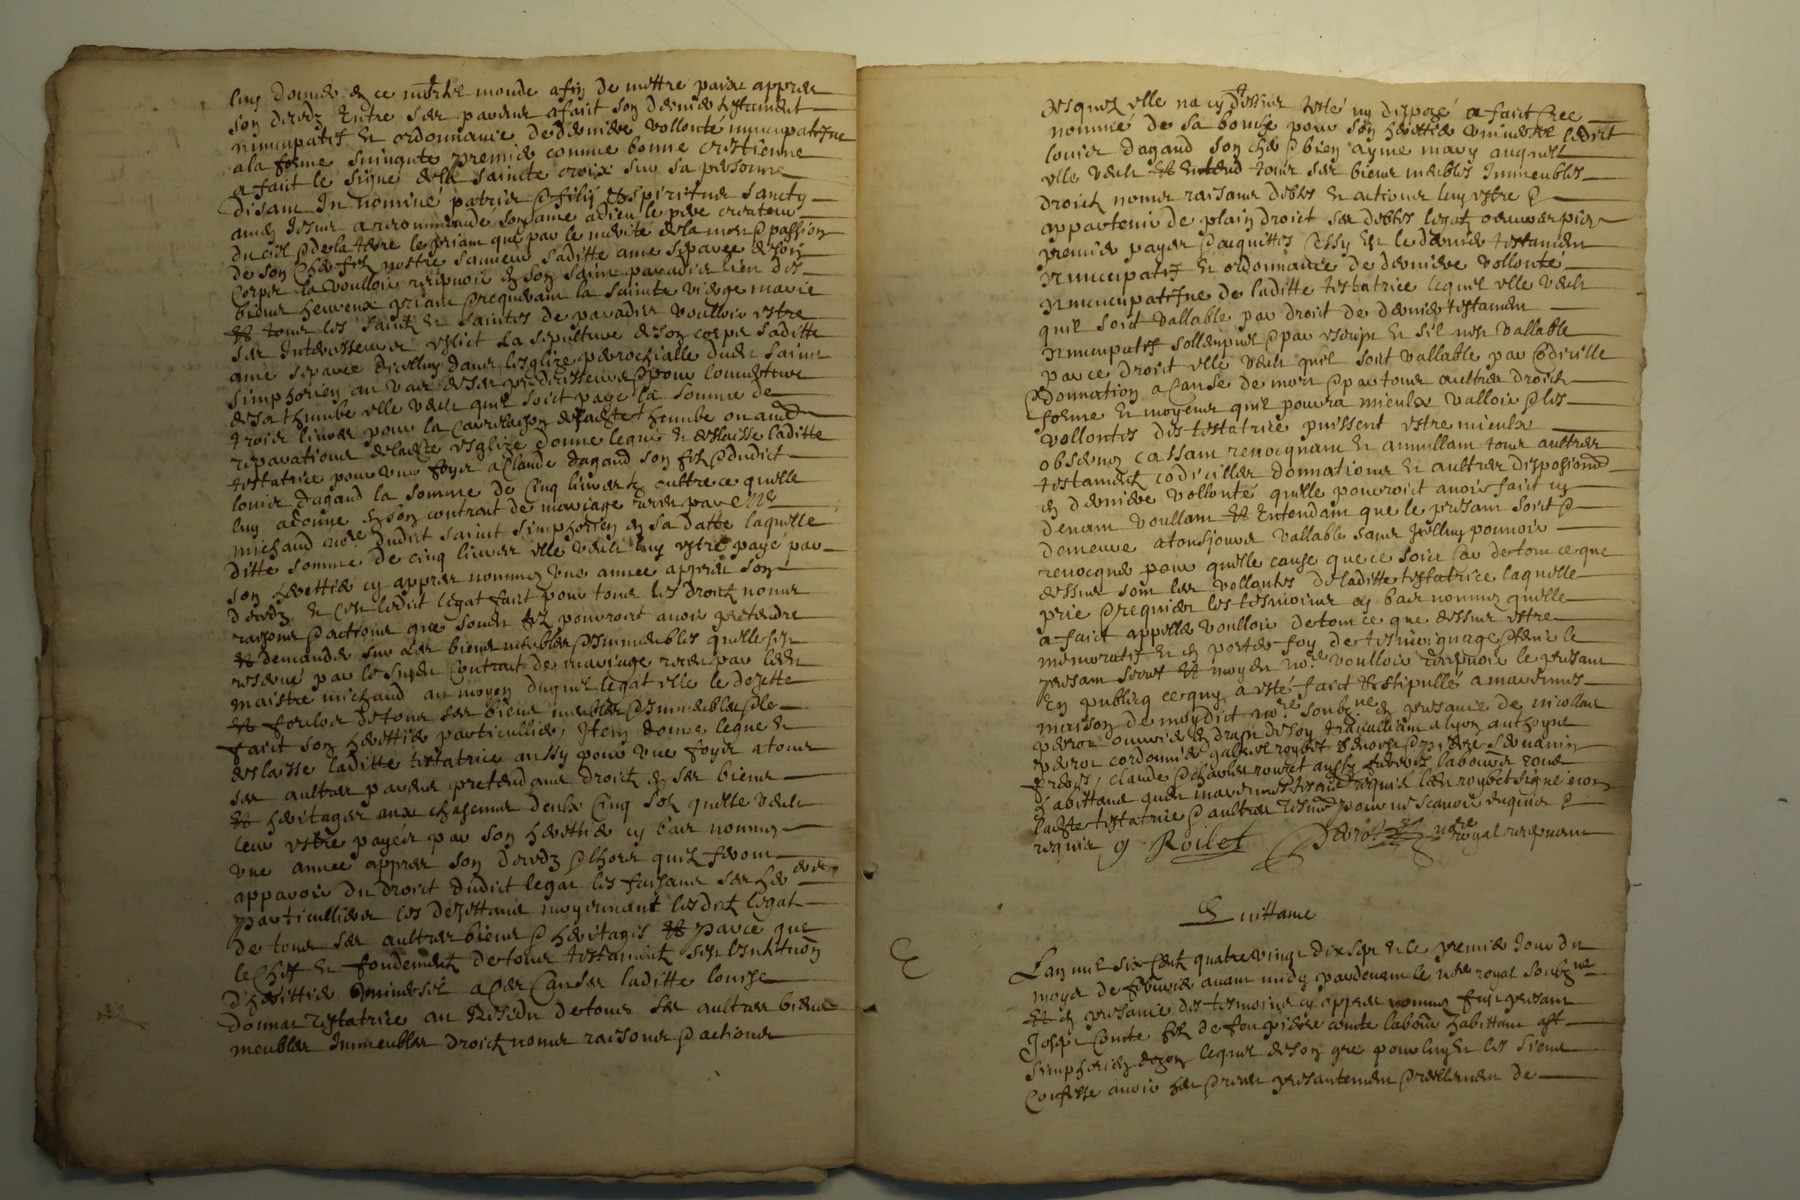 luy donner en ce mortel monde affin de mettre paix apprez
son decedz entre ses parens a faict son dernier testament
nuncupatif et ordonnance de derniere vollonté nuncupatifue
a la forme suiuante premier comme bonne crestienne
a faict le signe de la saincte croix sur sa personne
disant In nomine patris et filij et spiritus sancty
amen Jesus a recommandé son ame a dieu le pere createur
du ciel et de la terre le priant que par le merite de la mort et passion
de son cher filz nostre sauueur saditte ame separee de son
corps la voulloir recepuoir en son saint paradis lieu des
biens heureux priant et requerant la sainte vierge marie
et tous les saintz et saintes de paradis voulloir estre
ses intercesseurs eslict la sepulture de son corps saditte
ame separee d'icelluy dans lesglize parrochialle dudit saint
simphorien au vas de ses predecesseurs et pour l'ouuerture
de sa thumbe elle veult quil soict payé la somme de
trois liures pour la carrelaison de laditte thumbe ou aux
reparations de laditte esglize donne legue et deslaisse laditte
testatrice pour vne foys a Claude dagand son filz et dudict
louis dagand la somme de cinq liures outtre ce quelle
luy a donné en son contrat de mariage receu par me
michaud nore dudit saint simphorien en sa datte laquelle
ditte somme de cinq liures elle veult luy estre payé par
son herettier cy apprez nommez vne annee apprez son
decedz et c'est ledict legat faict pour tous les droictz noms
raisons et actions que sondit filz pourroit auoir pretendre
et demander sur ses biens meubles et immeubles quelle sest
reserué par le susdit contrat de mariage receu par ledit
maistre michaud au moyen duquel legat elle le dejette
et forclos de tous ses biens meubles et immeubles et le
faict son herettier particullier, Item donne legue et
deslaisse laditte testatrice aussy pour vne foys a tous
ses aultres parens pretendans droictz en ses biens
et heritages aux chascuns deulx cinq solz quelle veult
leur estre payés par son herettier cy bas nommez
vne annee apprez son decedz et lhors quilz feront
apparoir du droict dudict legat les faisans ses her
particulliers les dejettant moyennant lesditz legat
de tous ses aultres biens et heritages et parce que
le chef et fondement de tous testament sest l'institution
d'herettier vniuersel a ces causes laditte louise
donnat testatrice au residu de tous ses aultres biens
meubles immeubles droictz noms raisons et actions
desquelz elle na cy dessus testé ny disposé a faict cree
nommé de sa bouche pour son herettier vniuersel ledit
louis dagand son cher et bien aymé mary auquel
elle veult et entend tous ses biens meubles immeubles
droictz noms raisons debtes et actions luy estre et
appartenir de plain droict ses debtes legatz oeuures pies
premier payés et acquittés cessy est le dernier testament
nuncupatif et ordonnance de derniere vollonté
nuncupatifue de laditte testatrice lequel elle veult
quil soict vallable par droict de dernier testament
nuncupatif sollempnel et par escript et sil nest vallable
par ce droict elle veult quil soit vallable par codicille
donnation a cause de mort et par tous aultres droictz
forme et moyens quil pourra mieulx valloir et les
vollontes des testatrice puissent estre mieulx
obseruez cassant reuocquant et annullant tous aultres
testamentz codicilles donnations et aultres dispositions
de derniere vollonté quelle pourroict auoir faict cy
deuant voullant et entendant que le present soict et
demeure a tousjours vallable sans icelluy pouuoir
reuocquer pour quelle cause que ce soict car de tout ce que
dessus sont les vollontes de laditte testatrice laquelle
prie et requiert les tesmoins cy bas nommez quelle
a faict appeller voulloir de tout ce que dessus estre
memoratif et en porter foy de tesmoignage et tenir le
present secret et moy dit nore voulloir recepuoir le present
en publicq ce quy a esté faict et stipullé a mauernes
maison de moydict nore soubzne en presance de nicollas
perrot ouurier en drapt de soy trauaillant a lyon anthoyne
perrot cordonnier gabriel roybet
, claude et charles rouset aussy laboureurs tous
habittans audit mauernes tesmoins requis ledit roybet signé non
laditte testatrice et aultres tesmoins pour ne scauoir enquis et
requis g Roibet Perrot nore royal recepuant
Quittance
L'an mil six centz quatre vingt dix sept et le premier jour du
moys de feburier auant midy pardeuant le nore royal soubzne
et en presance des tesmoins cy apprez nommez fust present
Joseph Comte filz de feu pierre comte laboureur habittant a st
simphorien dozon lequel de son gré pour luy et les siens
confesse auoir heu et receu presantement et reellement de